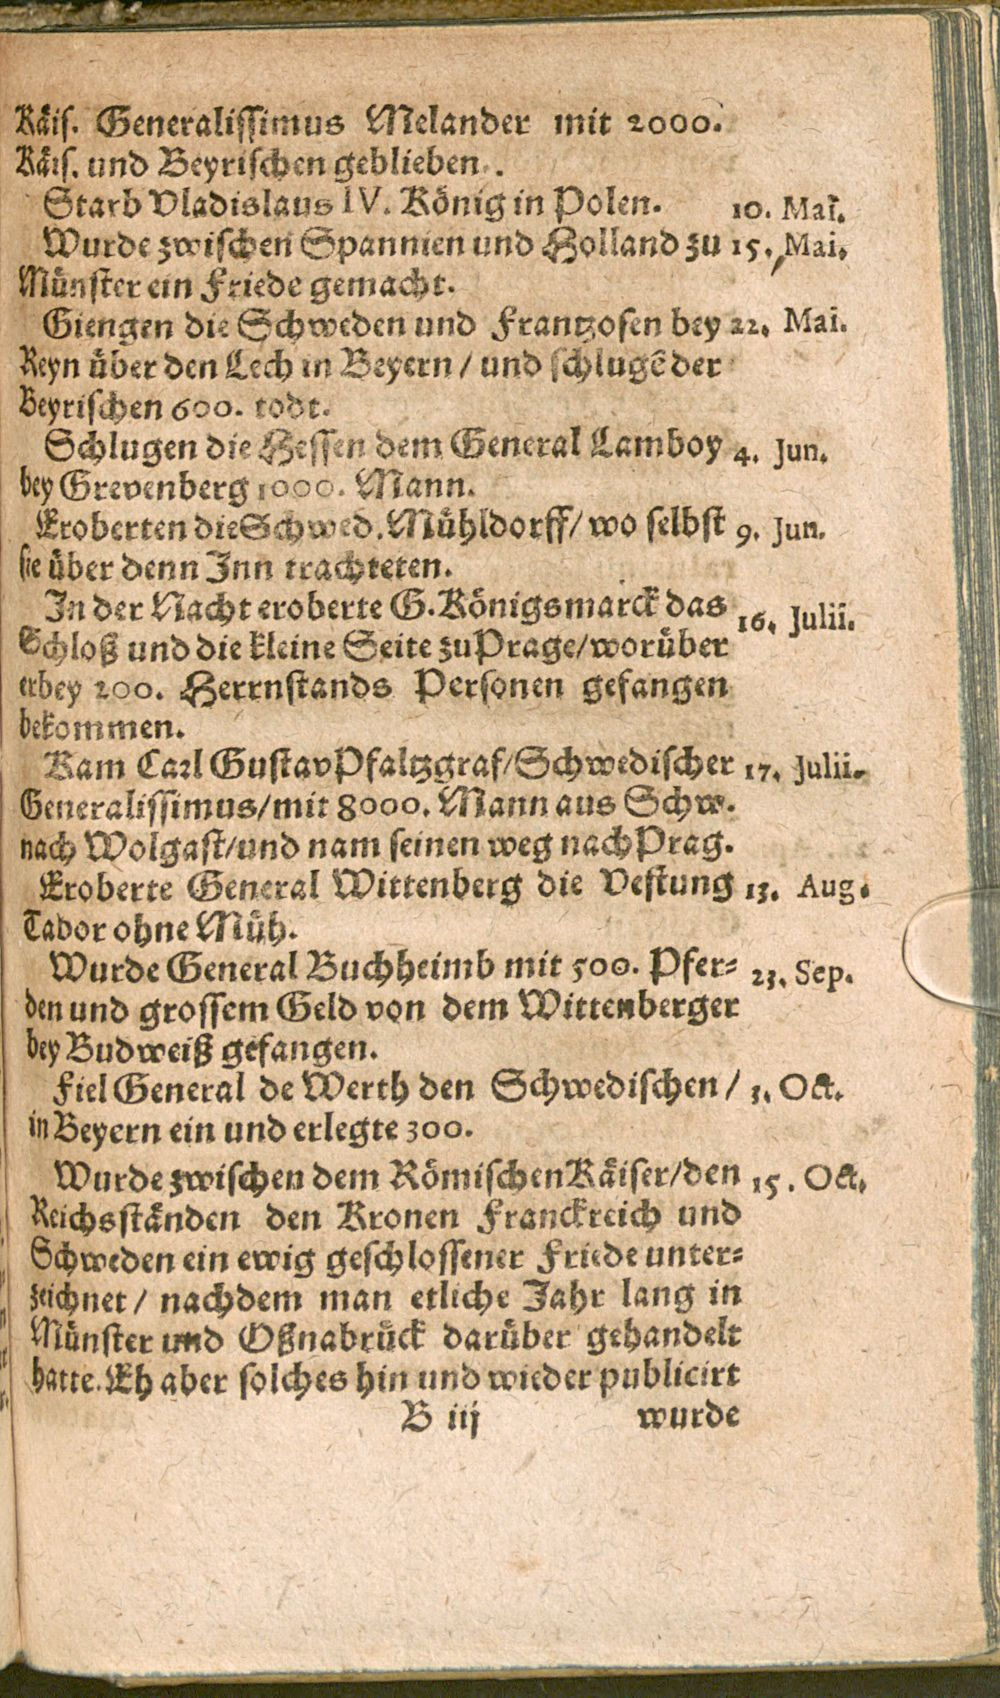 Käis. Generalissimus Melander mit 2000.
Käis. und Beyrischen geblieben.
Starb Vladislaus IV. König in Polen. 10. Mai.
Wurde zwischen Spannien und Holland zu 15. Mai.
Münster ein Friede gemacht.
Giengen die Schweden und Frantzosen bey 22. Mai.
Reyn über den Lech in Beyern / und schlugē der
Beyrischen 600. todt.
Schlugen die Hessen dem General Lamboy 4. Jun.
bey Grevenberg 1000. Mann.
Eroberten die Schwed. Mühldorff / wo selbst 9. Jun.
sie über denn Inn trachteten.
In der Nacht eroberte G. Königsmarck das 16. Julii.
Schloß und die kleine Seite zu Prage / worüber
erbey 200. Herrnstands Personen gefangen
bekommen.
Kam Carl Gustav Pfaltzgraf / Schwedischer 17. Julii.
Generalissimus / mit 8000. Mann aus Schw.
nach Wolgast / und nam seinen weg nach Prag.
Eroberte General Wittenberg die Vestung 13. Aug.
Tabor ohne Müh.
Wurde General Buchheimb mit 500. Pfer= 23. Sep.
den und grossem Geld von dem Wittenberger
bey Budweiß gefangen.
Fiel General de Werth den Schwedischen / 3. Oct.
in Beyern ein und erlegte 300.
Wurde zwischen dem Römischen Käiser / den 15. Oct.
Reichsständen den Kronen Franckreich und
Schweden ein ewig geschlossener Friede unter=
zeichnet / nachdem man etliche Jahr lang in
Münster und Oßnabrück darüber gehandelt
hatte. Eh aber solches hin und wieder publicirt
B iij wurde